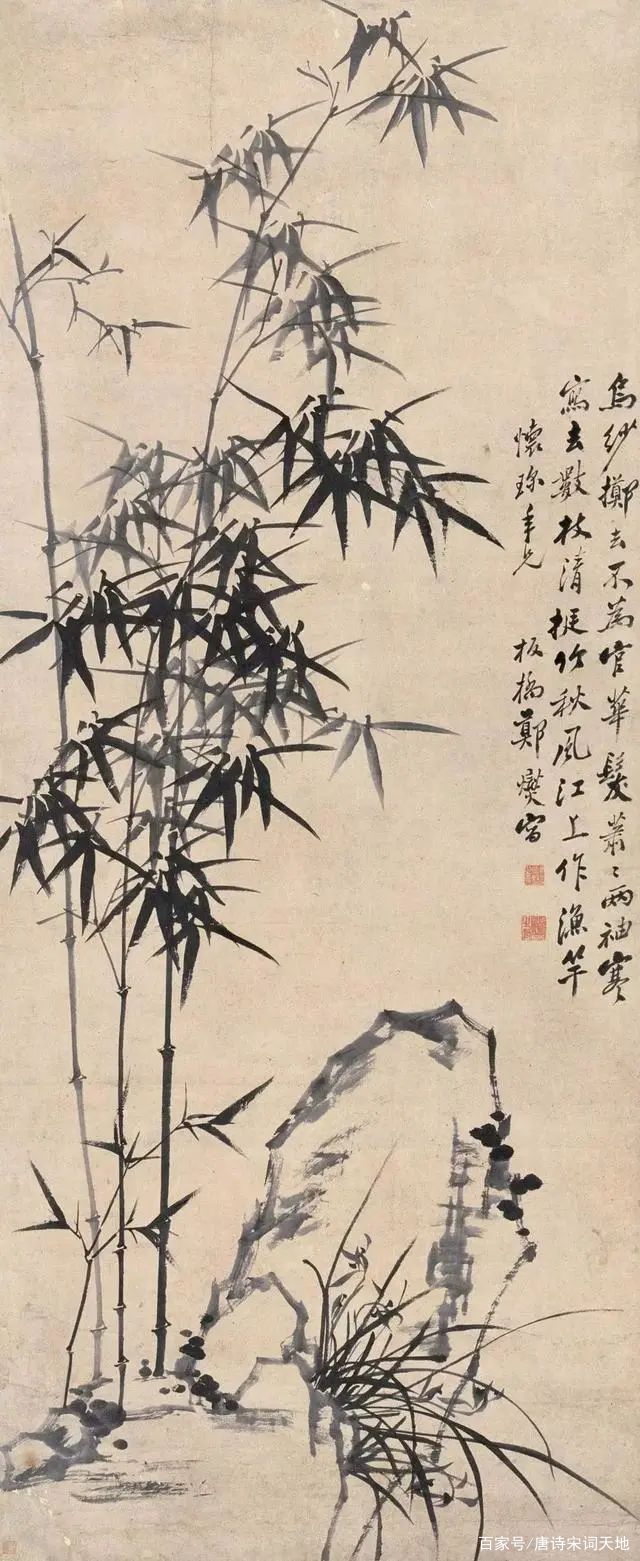 烏紗擲去不為官華髮蕭〻兩袖寒
寫去數枝清挺竹秋風江上作漁竿
懷珎年兄 板橋鄭燮寫
百家号/唐诗宋词天地